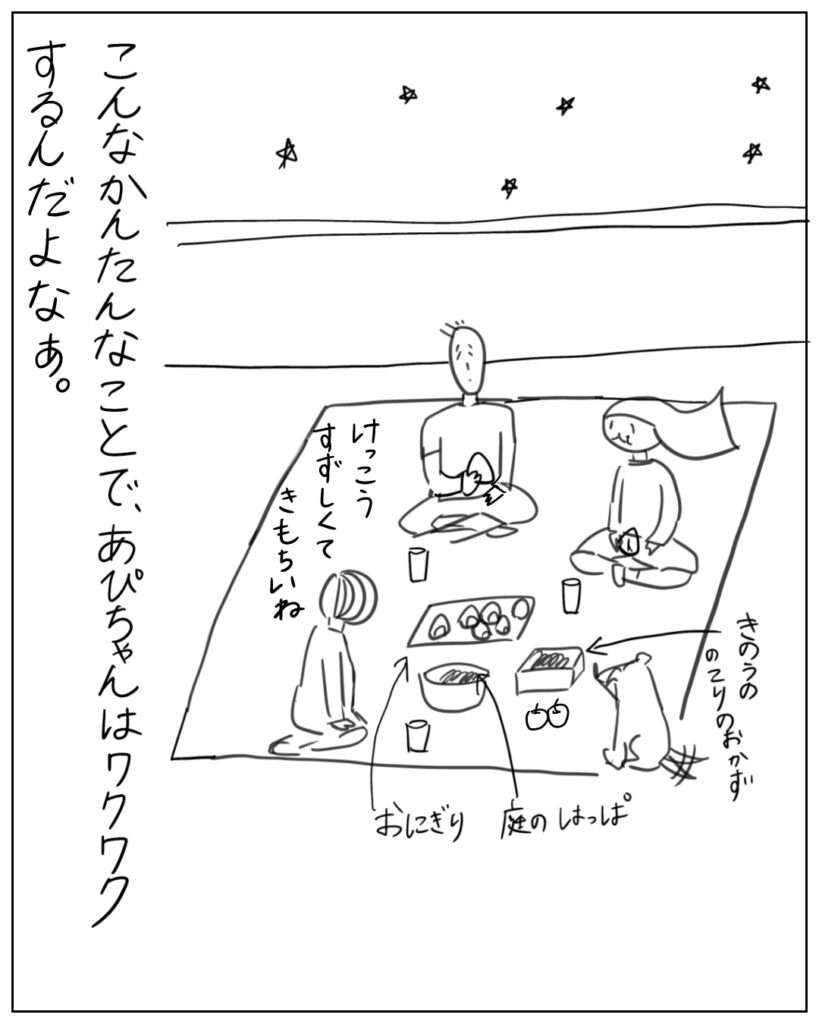 こんなかんたんなことで、あぴちゃんはワクワク
するんだよなぁ。
けっこう
すずしくて
きもちいね
きのうの
のこりのおかず
おにぎり
庭のはっぱ